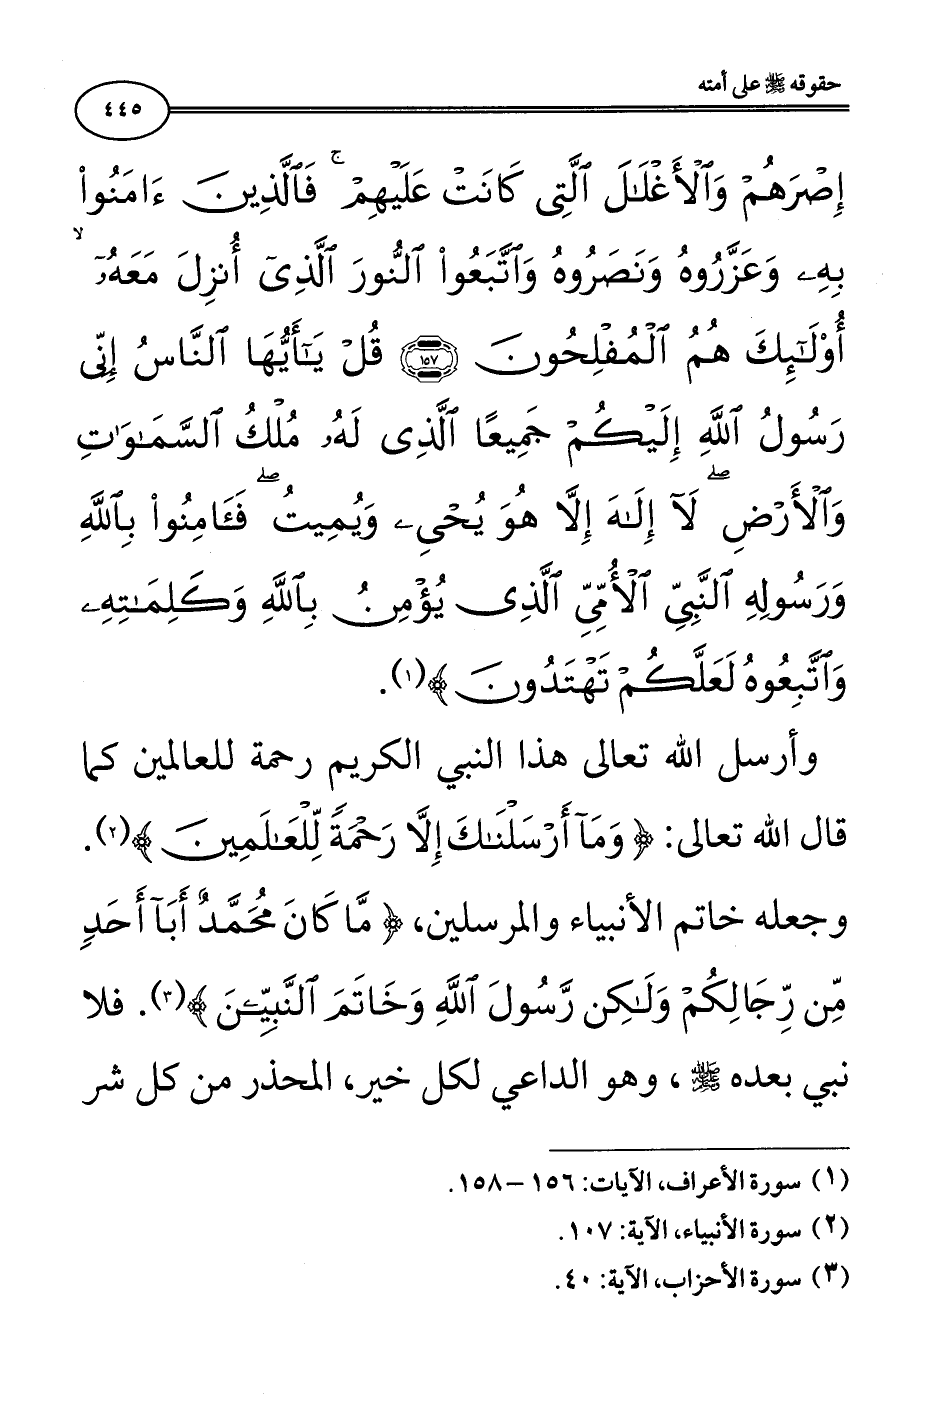 حقوقه ﷺ على أمته
٤٤٥
إِصْرَهُمْ وَٱلْأَغْلَـٰلَ ٱلَّتِى كَانَتْ عَلَيْهِمْ ۚ فَٱلَّذِينَ ءَامَنُوا۟
بِهِۦ وَعَزَّرُوهُ وَنَصَرُوهُ وَٱتَّبَعُوا۟ ٱلنُّورَ ٱلَّذِىٓ أُنزِلَ مَعَهُۥٓ ۙ
أُو۟لَـٰٓئِكَ هُمُ ٱلْمُفْلِحُونَ ١٥٧ قُلْ يَـٰٓأَيُّهَا ٱلنَّاسُ إِنِّى
رَسُولُ ٱللَّهِ إِلَيْكُمْ جَمِيعًا ٱلَّذِى لَهُۥ مُلْكُ ٱلسَّمَـٰوَٰتِ
وَٱلْأَرْضِ ۖ لَآ إِلَـٰهَ إِلَّا هُوَ يُحْىِۦ وَيُمِيتُ ۖ فَـَٔامِنُوا۟ بِٱللَّهِ
وَرَسُولِهِ ٱلنَّبِىِّ ٱلْأُمِّىِّ ٱلَّذِى يُؤْمِنُ بِٱللَّهِ وَكَلِمَـٰتِهِۦ
وَٱتَّبِعُوهُ لَعَلَّكُمْ تَهْتَدُونَ ﴾(١).
وأرسل الله تعالى هذا النبي الكريم رحمة للعالمين كما
قال الله تعالى: ﴿ وَمَآ أَرْسَلْنَـٰكَ إِلَّا رَحْمَةً لِّلْعَـٰلَمِينَ ﴾(٢).
وجعله خاتم الأنبياء والمرسلين، ﴿ مَّا كَانَ مُحَمَّدٌ أَبَآ أَحَدٍ
مِّن رِّجَالِكُمْ وَلَـٰكِن رَّسُولَ ٱللَّهِ وَخَاتَمَ ٱلنَّبِيِّـۧنَ ﴾(٣). فلا
نبي بعده ﷺ ، وهو الداعي لكل خير، المحذر من كل شر
(١) سورة الأعراف، الآيات: ١٥٦ – ١٥٨.
(٢) سورة الأنبياء، الآية: ١٠٧.
(٣) سورة الأحزاب، الآية: ٤٠.